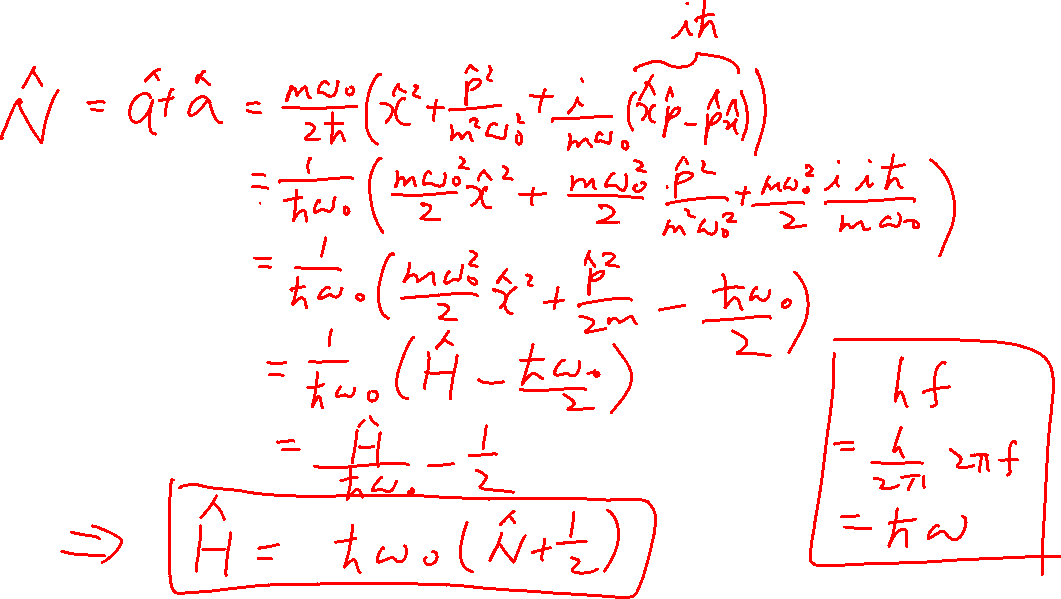 iħ
N̂ = â†â = mω₀/2ħ (x̂² + p̂²/m²ω₀² + i/mω₀ (x̂p̂ - p̂x̂))
= 1/ħω₀ (mω₀²/2 x̂² + mω₀²/2 · p̂²/m²ω₀² + mω₀²/2 i iħ/mω₀)
= 1/ħω₀ (mω₀²/2 x̂² + p̂²/2m - ħω₀/2)
= 1/ħω₀ (Ĥ - ħω₀/2)
= Ĥ/ħω₀ - 1/2
⇒ Ĥ = ħω₀(N̂ + 1/2)
hf
= h/2π 2πf
= ħω